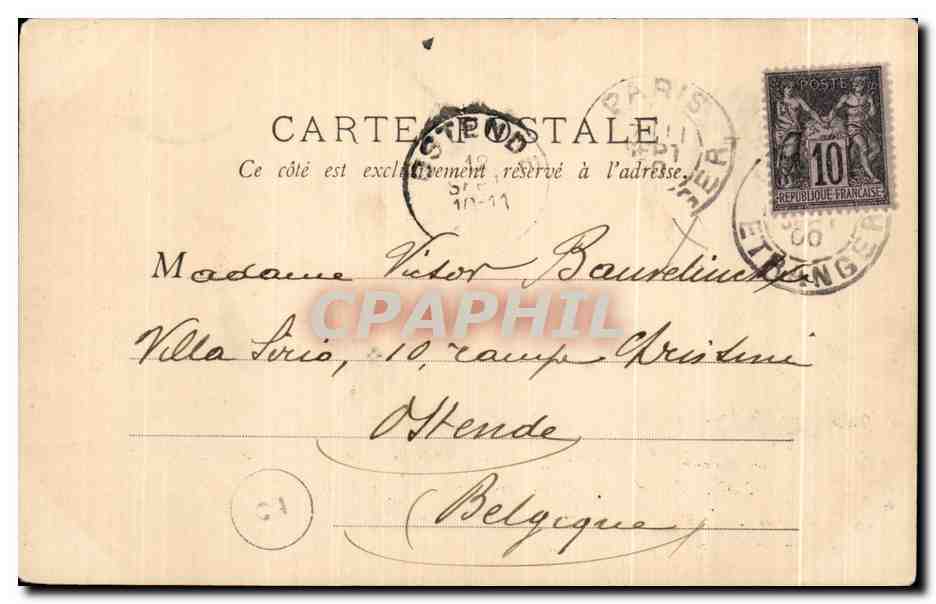 CARTE POSTALE
Ce côté est exclusivement réservé à l'adresse.
PARIS
11
ETRANGER
OSTENDE
12
SEPT
10-11
POSTE
10
REPUBLIQUE FRANÇAISE
00
ETRANGER
Madame Victor
Villa Sirio, 10, rampe Christine
Ostende
Belgique
CPAPHIL